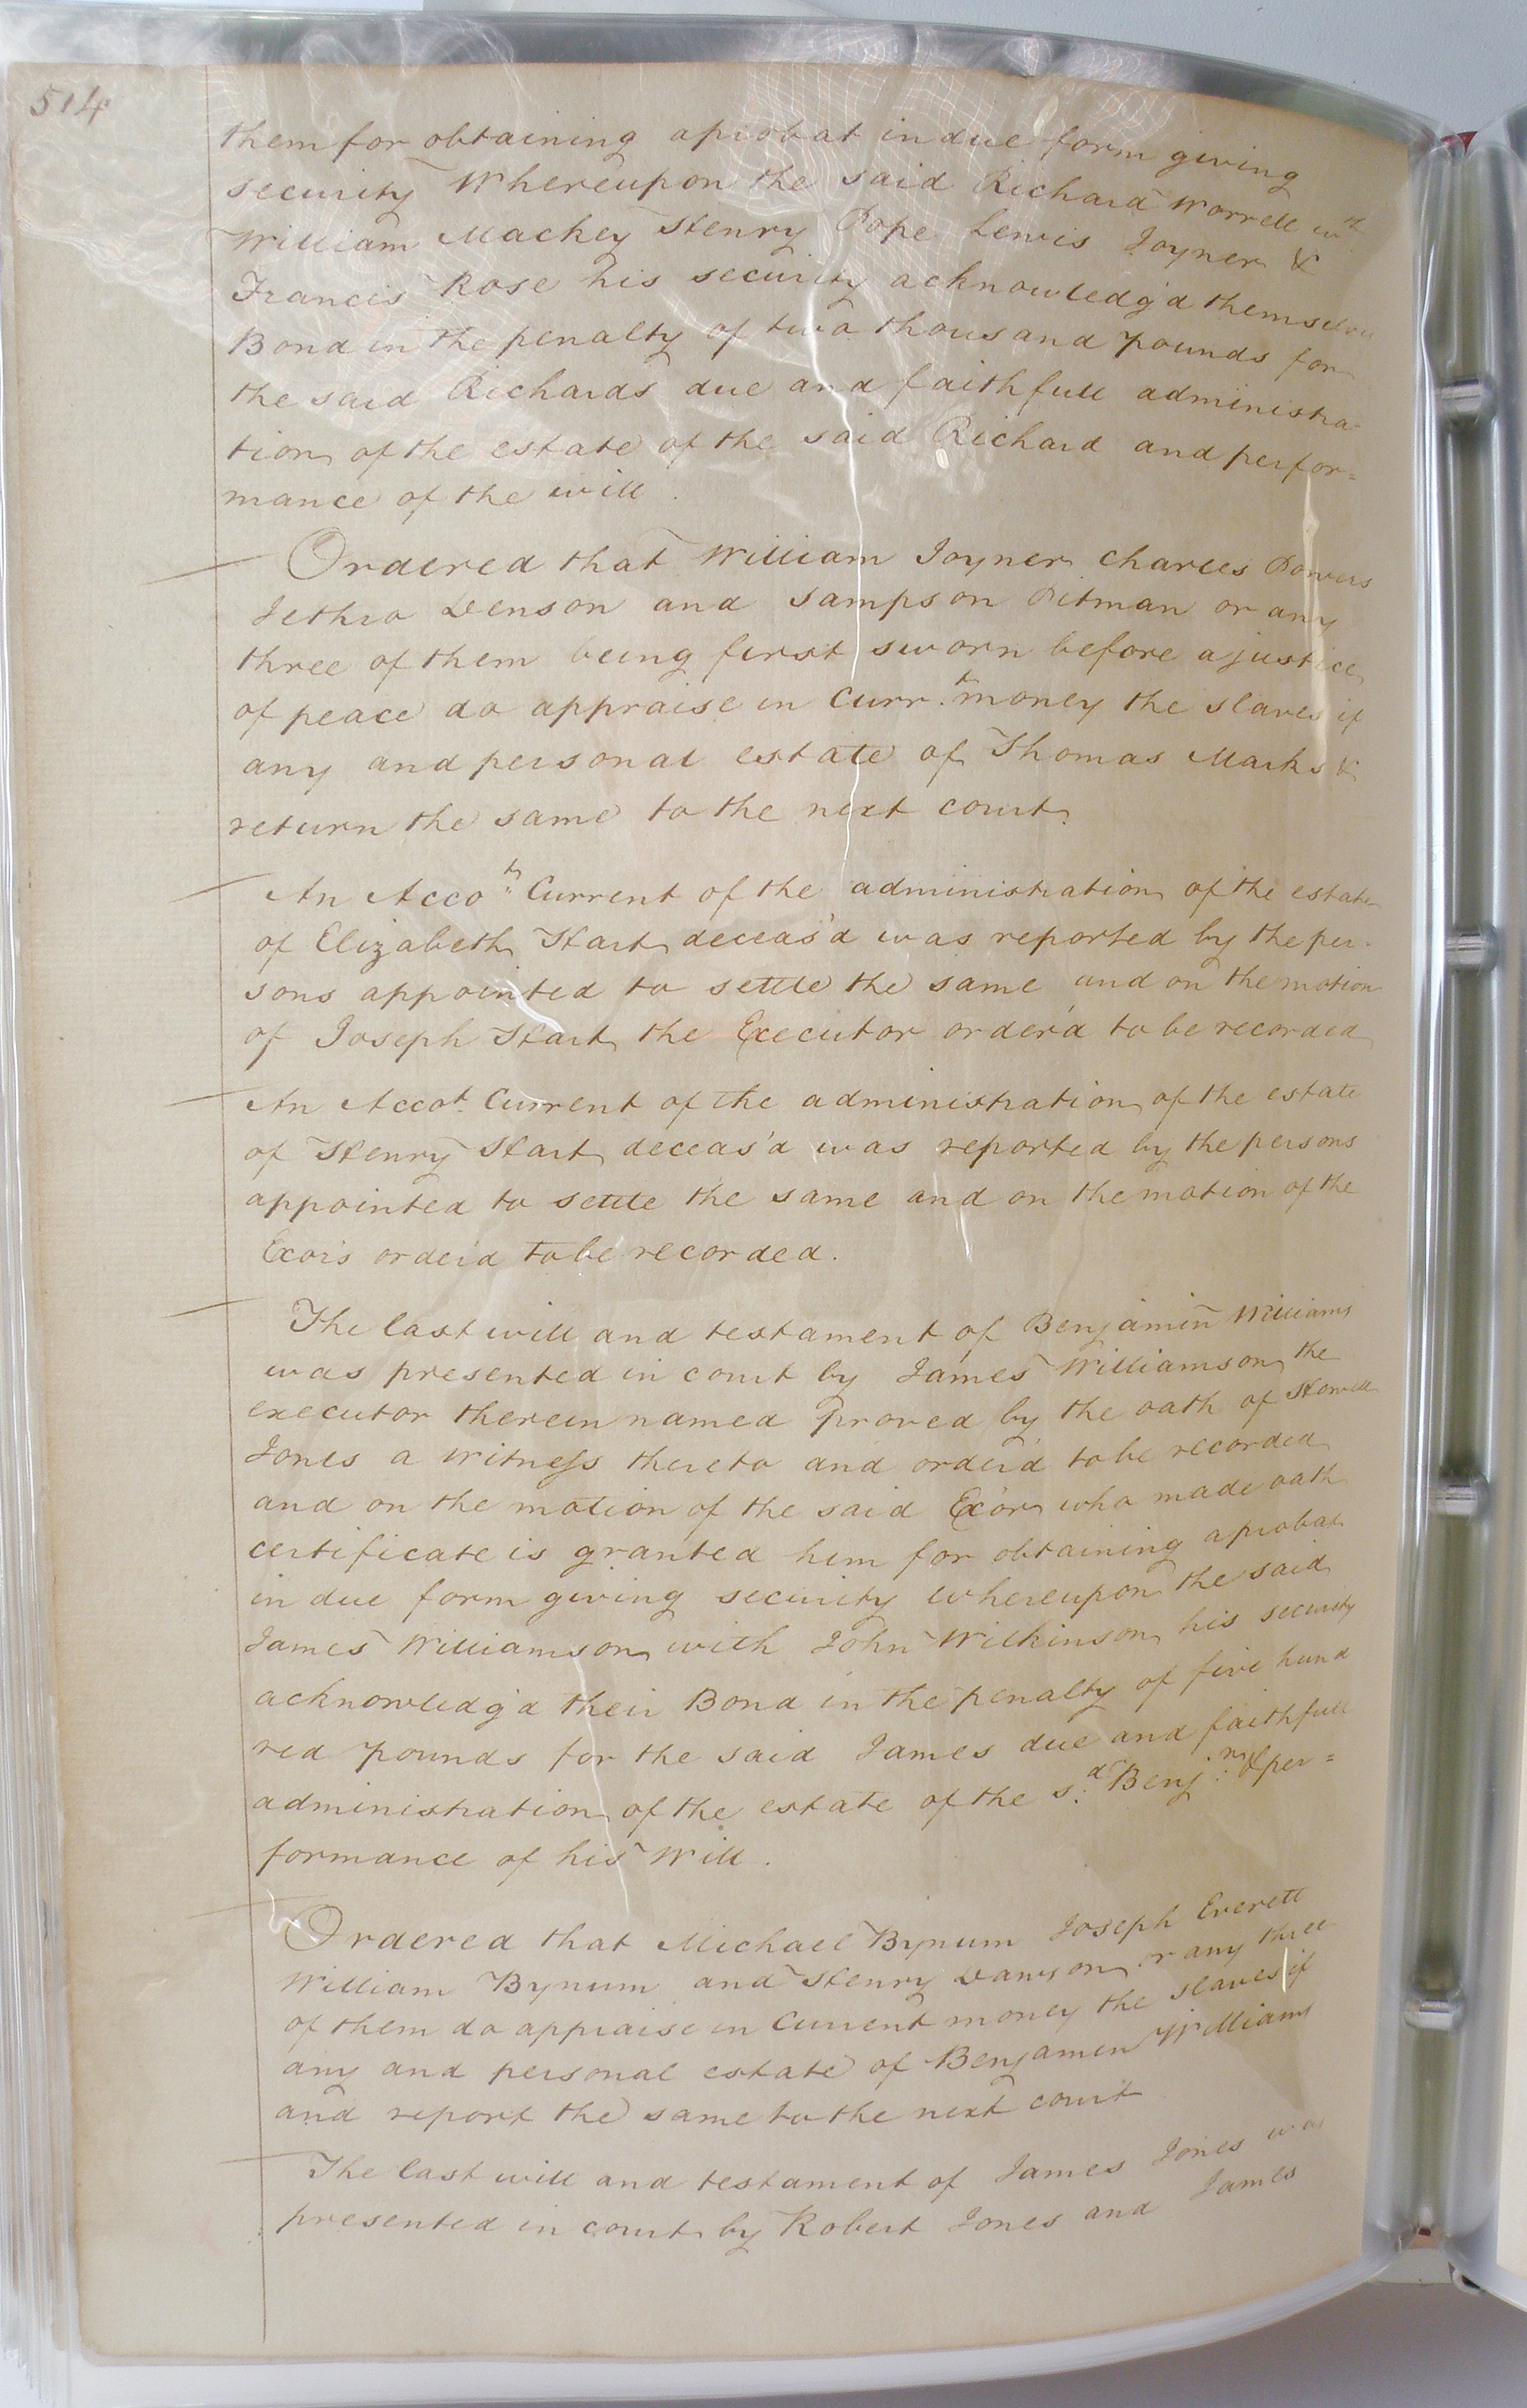 514
them for obtaining a probat in due form giving
security Whereupon the said Richard Worrell wth
William Mackey Henry Pope Lewis Joyner &
Francis Rose his security acknowledg'd themselves
Bond in the penalty of two thousand pounds for
the said Richards due and faithfull administra-
tion of the estate of the said Richard and perfor=
mance of the will.
Ordered that William Joyner Charles Powers
Jethro Denson and Sampson Pitman or any
three of them being first sworn before a justice
of peace do appraise in Curr.t money the slaves if
any and personal estate of Thomas Marks &
return the same to the next court.
An Acco.t Current of the administration of the estate
of Elizabeth Hart deceas'd was reported by the per-
sons appointed to settle the same and on the motion
of Joseph Hart the Executor order'd to be recorded
An Accot. Current of the administration of the estate
of Henry Hart deceas'd was reported by the persons
appointed to settle the same and on the motion of the
Exors order'd to be recorded.
The last will and testament of Benjamin Williams
was presented in court by James Williamson the
executor therein named proved by the oath of Howell
Jones a witness thereto and order'd to be recorded
and on the motion of the said Ex'or who made oath
certificate is granted him for obtaining a probat
in due form giving security whereupon the said
James Williamson with John Wilkinson his security
acknowledg'd their Bond in the penalty of five hund
red pounds for the said James due and faithfull
administration of the estate of the s.d Benj.n & per=
formance of his Will.
Ordered that Michael Bynum Joseph Everett
William Bynum and Henry Dawson or any three
of them do appraise in Current money the slaves if
any and personal estate of Benjamen Williams
and report the same to the next court
The last will and testament of James Jones was
presented in court by Robert Jones and James